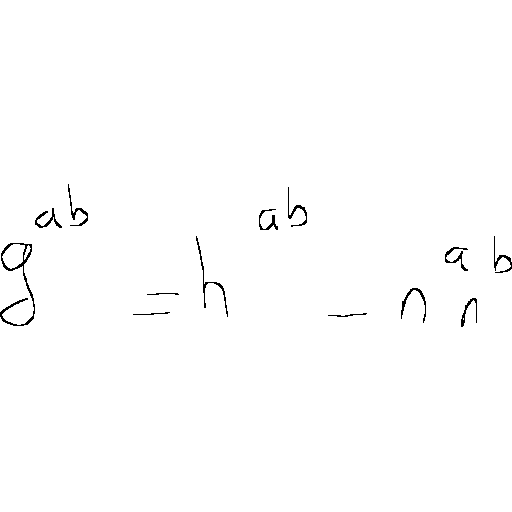 g^{ab} = h^{ab} - n^a n^b